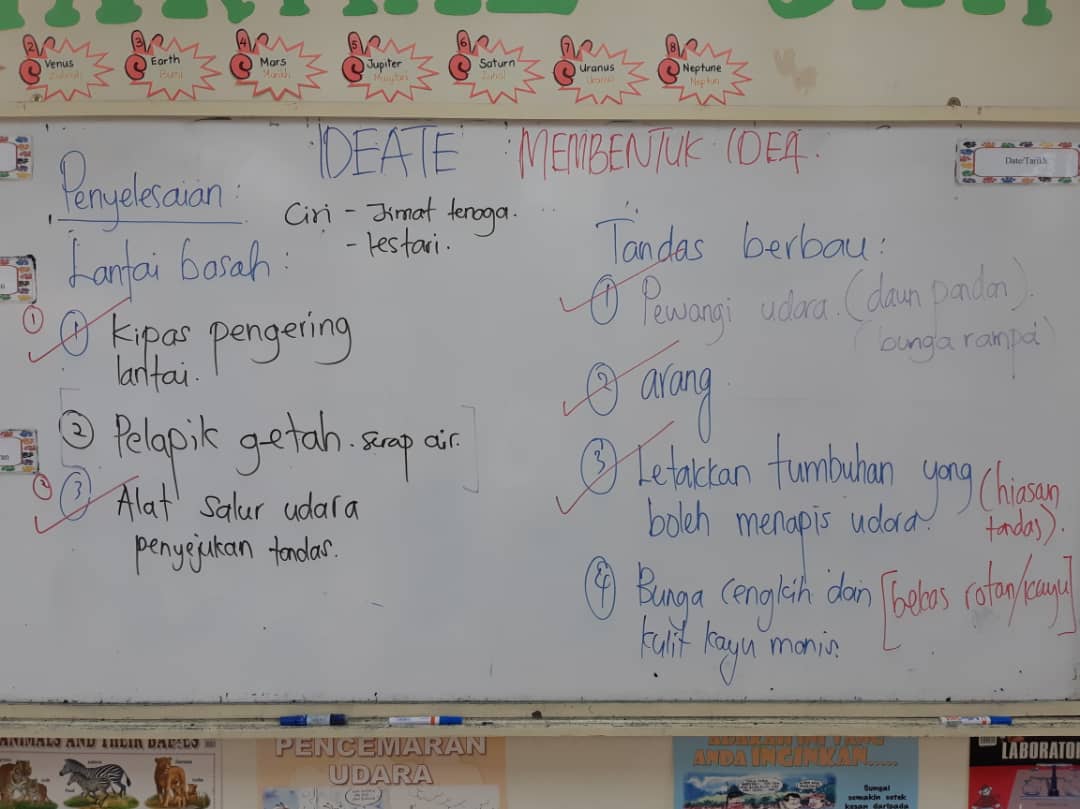 2 Venus Zuhrah
3 Earth Bumi
4 Mars Marikh
5 Jupiter Musytari
6 Saturn Zuhal
7 Uranus Uranus
8 Neptune Neptun
IDEATE MEMBENTUK IDEA.
Date/Tarikh
Penyelesaian:
Ciri - Jimat tenaga.
- Lestari.
Lantai basah:
1 1 Kipas pengering
lantai.
[2 Pelapik getah. serap air.]
2 3 Alat salur udara
penyejukan tandas.
Tandas berbau:
1 Pewangi udara. (daun pandan).
(bunga rampai)
2 arang.
3 Letakkan tumbuhan yang (hiasan
boleh menapis udara. tandas).
4 Bunga cengkih dan [bekas rotan/kayu]
kulit kayu manis.
ANIMALS AND THEIR BABIES
PENCEMARAN
UDARA
ANDA INGINKAN.....
Sungai
semakin cetek
kesan daripada
LABORATO